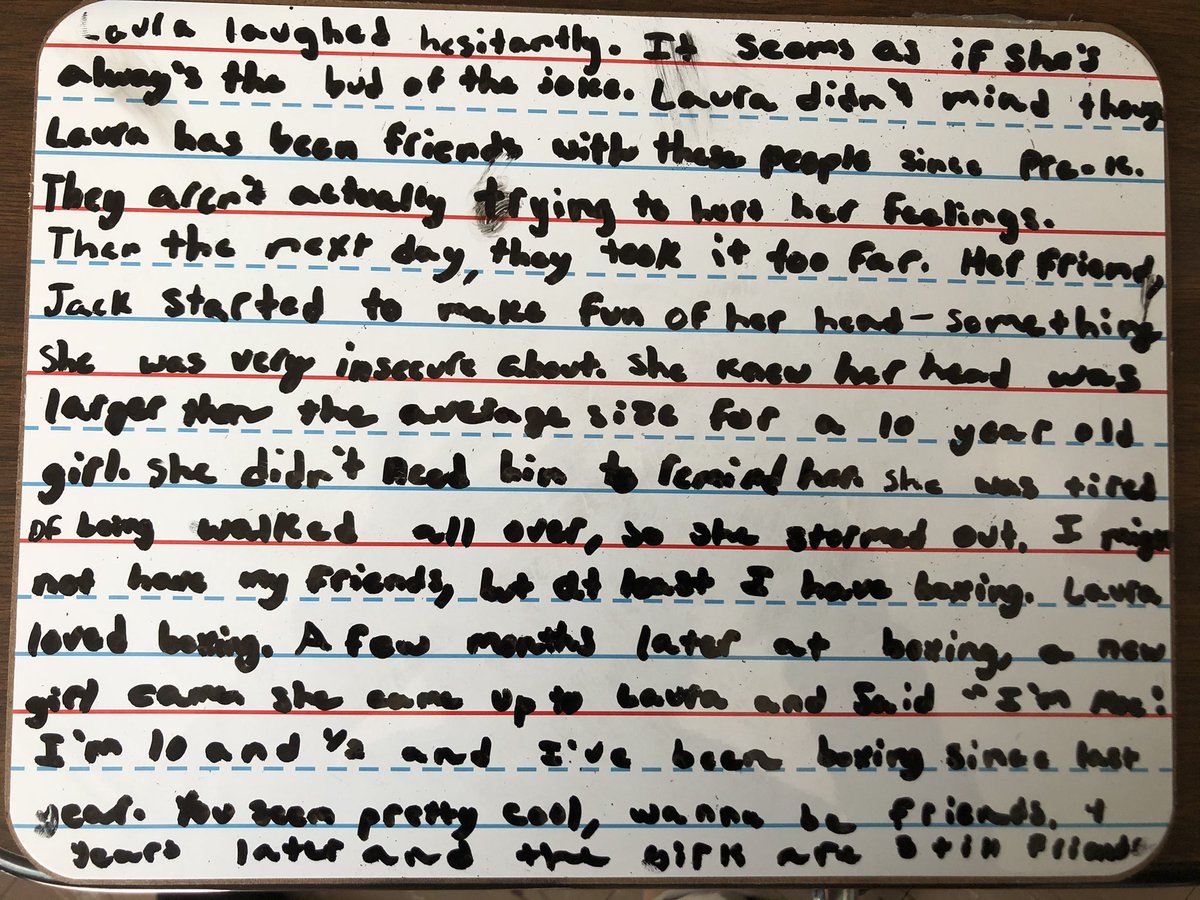 Laura laughed hesitantly. It seems as if she's
always the bud of the joke. Laura didn't mind thoug
Laura has been friends with these people since pre-k.
They aren't actually trying to hurt her feelings.
Then the next day, they took it too far. Her friend,
Jack started to make fun of her head - something
she was very insecure about. she knew her head was
larger then the average size for a 10 year old
girl. she didn't need him to remind her. she was tired
of being walked all over, so she stormed out. I migh
not have my friends, but at least I have boxing. Laura
loved boxing. A few months later at boxing, a new
girl came. she came up to Laura and said "I'm
I'm 10 and 1/2 and I've been boxing since last
year. You seem pretty cool, wanna be friends. 4
years later and the girls are still friends